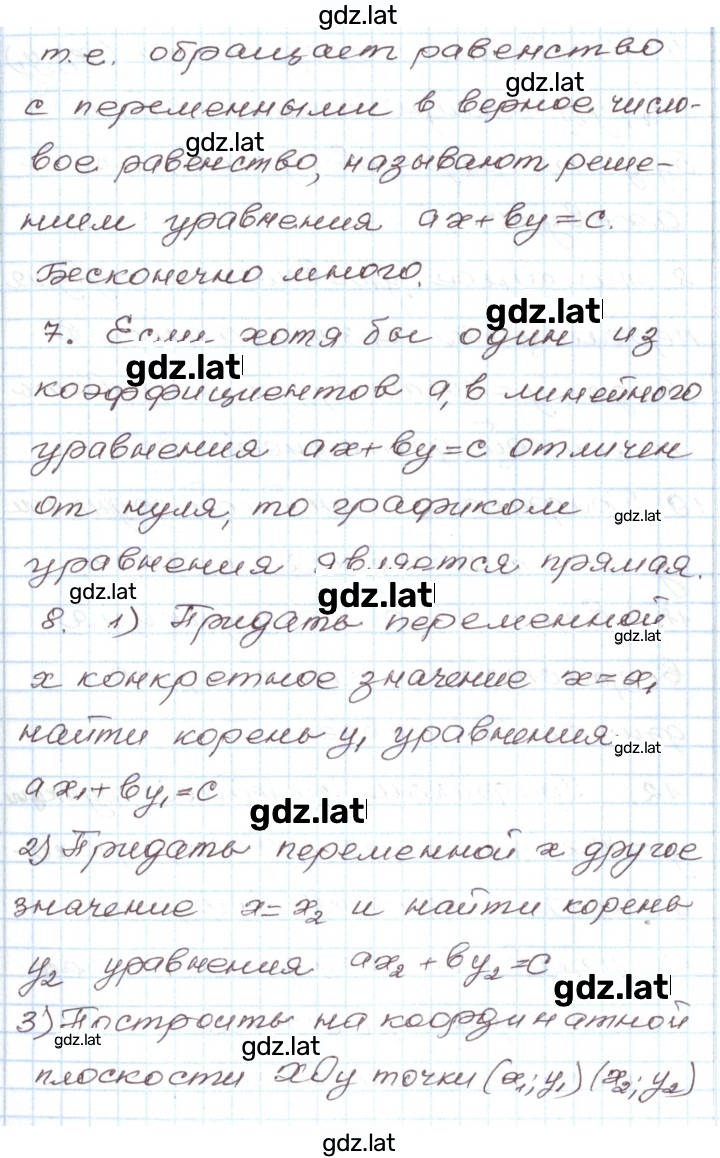 gdz.lat
т.е. обращает равенство
gdz.lat
с переменными в верное число-
gdz.lat
вое равенство, называют реше-
нием уравнения ax+by=c.
Бесконечно много.
gdz.lat
7. Если хотя бы один из
gdz.lat
коэффициентов a,b линейного
уравнения ax+by=c отличен
от нуля, то графиком
gdz.lat
уравнения является прямая.
gdz.lat
gdz.lat
8. 1) Придать переменной
gdz.lat
x конкретное значение x=x₁
найти корень y₁ уравнения
gdz.lat
ax₁+by₁=c
gdz.lat
2) Придать переменной x другое
значение x=x₂ и найти корень
y₂ уравнения ax₂+by₂=c
gdz.lat
3) Построить на координатной
gdz.lat
gdz.lat
плоскости xOy точки (x₁; y₁) (x₂; y₂)
gdz.lat